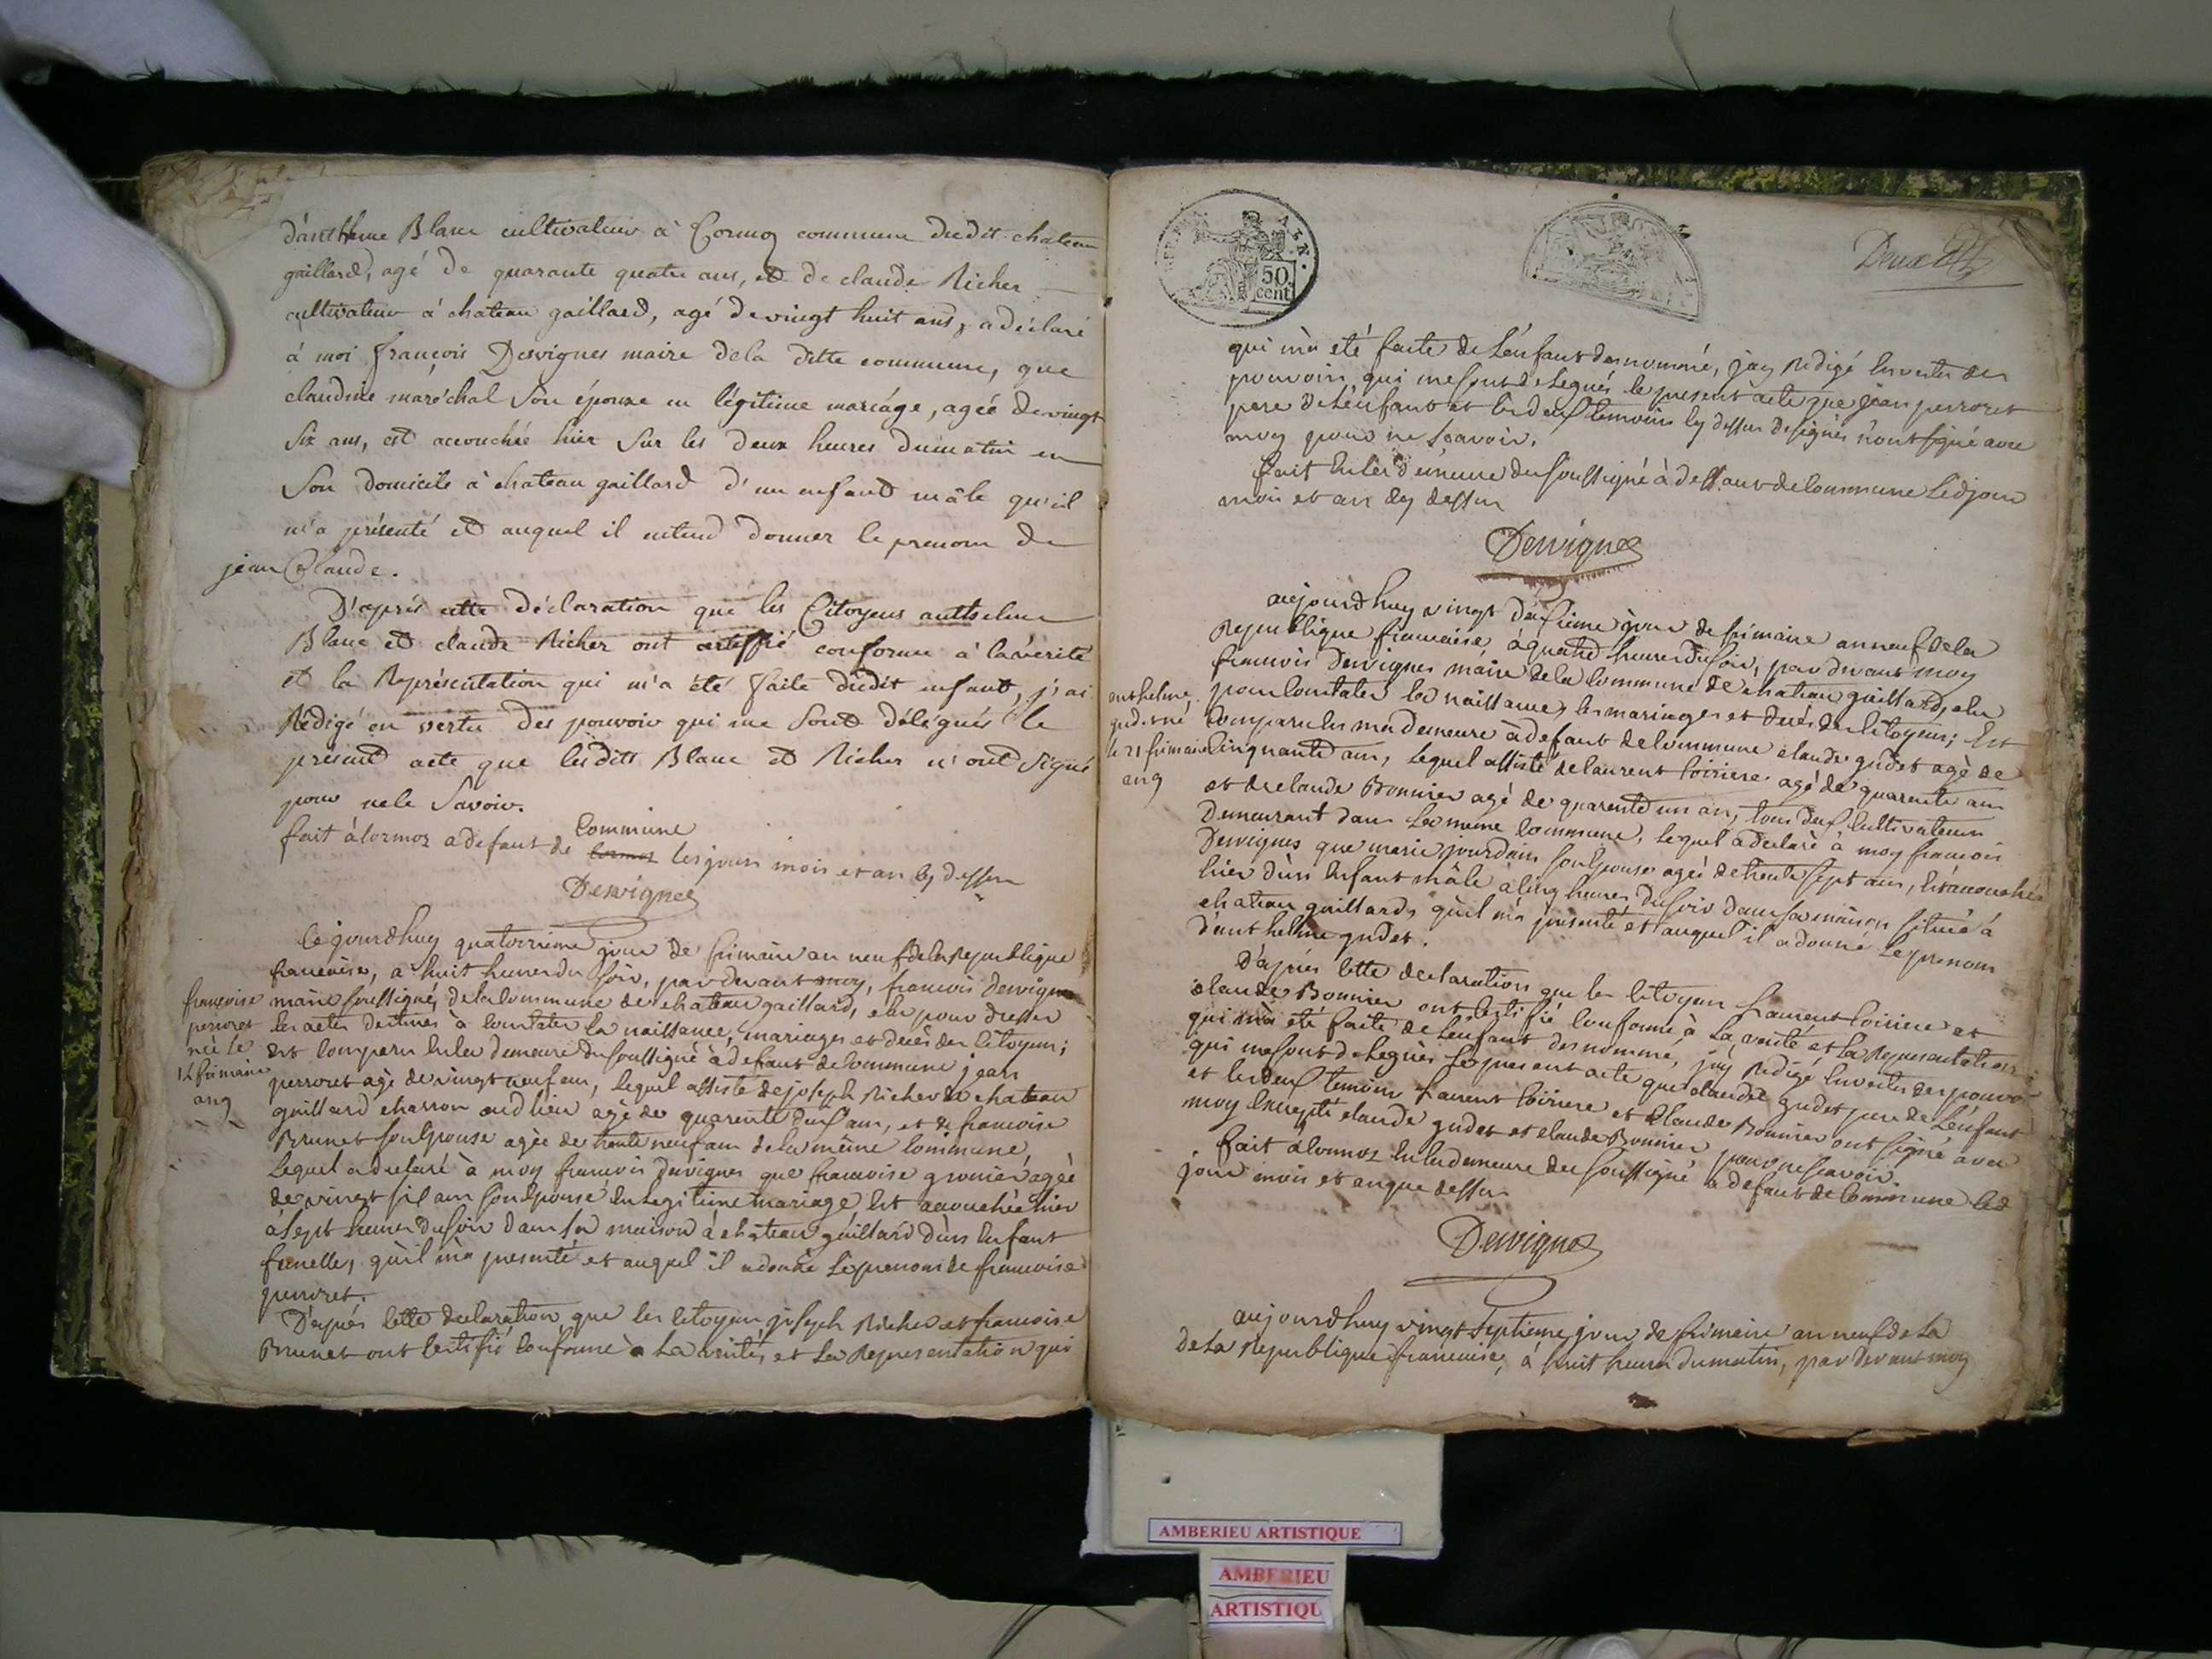 d'anthelme Blanc cultivateur à Cormoz commune dudit chateau
gaillard, agé de quarante quatre ans, et de claude Richer
cultivateur à chateau gaillard, agé de vingt huit ans, a déclaré
à moi françois Desvignes maire dela ditte commune, que
claudine maréchal Son épouse en légitime mariage, agée de vingt
Six ans, est accouchée hier Sur les deux heures dumatin en
Son domicile à chateau gaillard d'un enfant mâle qu'il
m'a présenté et auquel il entend donner le prenom de
jean Claude.
D'après cette déclaration que les Citoyens anthelme
Blanc et claude Richer ont certiffié conforme à la vérité
et la Représentation qui m'a été faite dudit enfant, j'ai
Rédigé en vertu des pouvoir qui me Sont délégués le
présent acte que lesdits Blanc et Richer n'ont Signé
pour nele Savoir.
fait àCormoz adefaut de Commune les jours mois et an cy dessus
Desvignes
Cejourdhuy quatorzieme jour de frimaire an neuf dela Republique
francoise, a huit heures du Soir, par devant moy, francois Desvignes
maire soussigné, dela Commune de chateau gaillard, elu pour dresser
les actes destinés à Constater la naissance, mariages et decès des Citoyens;
Est Comparu En la demeure du soussigné àdefaut de Commune jean
perroret agé de vingt neuf ans, lequel assisté de joseph Richer de chateau
gaillard charron aud lieu agé de quarente deux ans, et de francoise
Brunet son Epouse agée de trente neuf ans de la même Commune,
Lequel a declaré à moy francois Desvignes que francoise gronier agée
de vingt six ans son Epouse En Legitime mariage Est accouchée hier
à sept heures du soir dans sa maison à chateau gaillard d'un Enfant
femelle, qu'il m'a presenté et auquel il adonné Le prenom de francoise
perroret.
D'après Cette declaration que les Citoyens joseph Richer et francoise
Brunet ont Certifié Conforme à La verité, et La Representation qui
francoise
perroret
née le
14 frimaire
an 9
50
cent
Deux
qui m'a été faite de L'enfant desnommé, j'ay Redigé En vertu des
pouvoirs qui me sont delegués le present acte que jean perroret
pere de L'enfant et les deux temoins cy dessus designés n'ont signé avec
moy pour ne Scavoir.
fait En la demeure du soussigné à deffaut de Commune Led jour
mois et an cy dessus
Desvignes
aujourdhuy vingt deuxieme jour de frimaire an neuf dela
Republique francoise, à quatre heures du soir, par devant moy
francois Desvignes maire dela Commune de chateau gaillard, elu
pour Constater la naissance, les mariages et decés des Citoyens; Est
Comparu En ma demeure à defaut de Commune claude gudet agé de
Cinquante ans, Lequel assisté de laurent Coiriere agé de quarente ans
et de claude Bonnier agé de quarente un an, tous deux Cultivateurs
Demeurant dans La meme Commune, Lequel a declaré à moy francois
Desvignes que marie jourdain son Epouse agée de trente sept ans, Est accouchée
hier d'un Enfant mâle a Cinq heures du soir dans sa maison située à
chateau gaillard, qu'il m'a presenté et auquel il a donné Le prenom
d'anthelme gudet.
D'après Cette declaration que les Citoyens Laurent Coiriere et
claude Bonnier ont Certifié Conforme à La verité et La Representation
qui m'a été faite de L'enfant desnommé, j'ay Redigé En vertu des pouvoirs
qui me sont delegués Le present acte que claude gudet pere de L'enfant
et les deux temoins Laurent Coiriere et Claude Bonnier ont signé avec
moy Excepté claude gudet et claude Bonnier pour ne scavoir.
fait a Cormoz En la demeure du soussigné a defaut de Commune Led
jour mois et an que dessus
Desvignes
anthelme
gudet né
le 21 frimaire
an 9
aujourdhuy vingt Septieme jour de frimaire an neuf de La
de La Republique francoise, à huit heures du matin, par devant moy
AMBERIEU ARTISTIQUE
AMBERIEU
ARTISTIQU